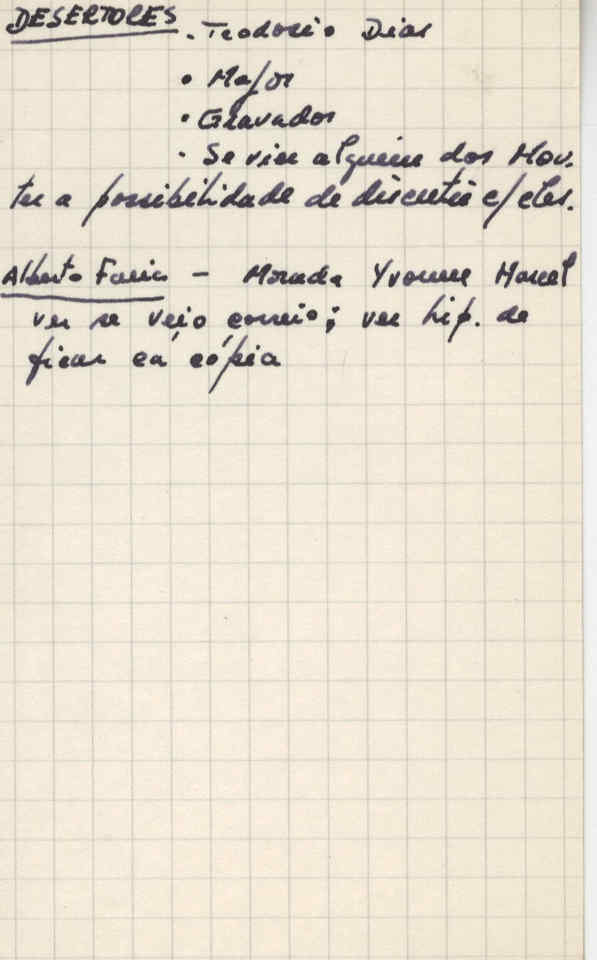 DESERTORES . Teodosio Dias
• Major
• Gravador
• Se vier alguem dos Mov.
ter a possibilidade de discutir c/ eles.
Alberto Faria - Morada Yvonne Marcel
ver se veio correio; ver hip. de
ficar cá cópia